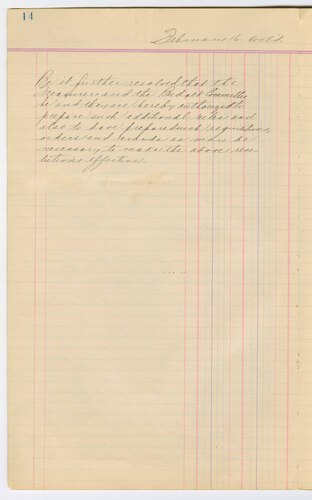 14
February 16 Cont'd.
Be it further resolved that the
Treasurer and the Budget Committee
be and they are hereby authorized to
prepare such additional rules and
also to have prepared such requisition,
orders and records as may be
necessary to make the above reso-
lutions effective.